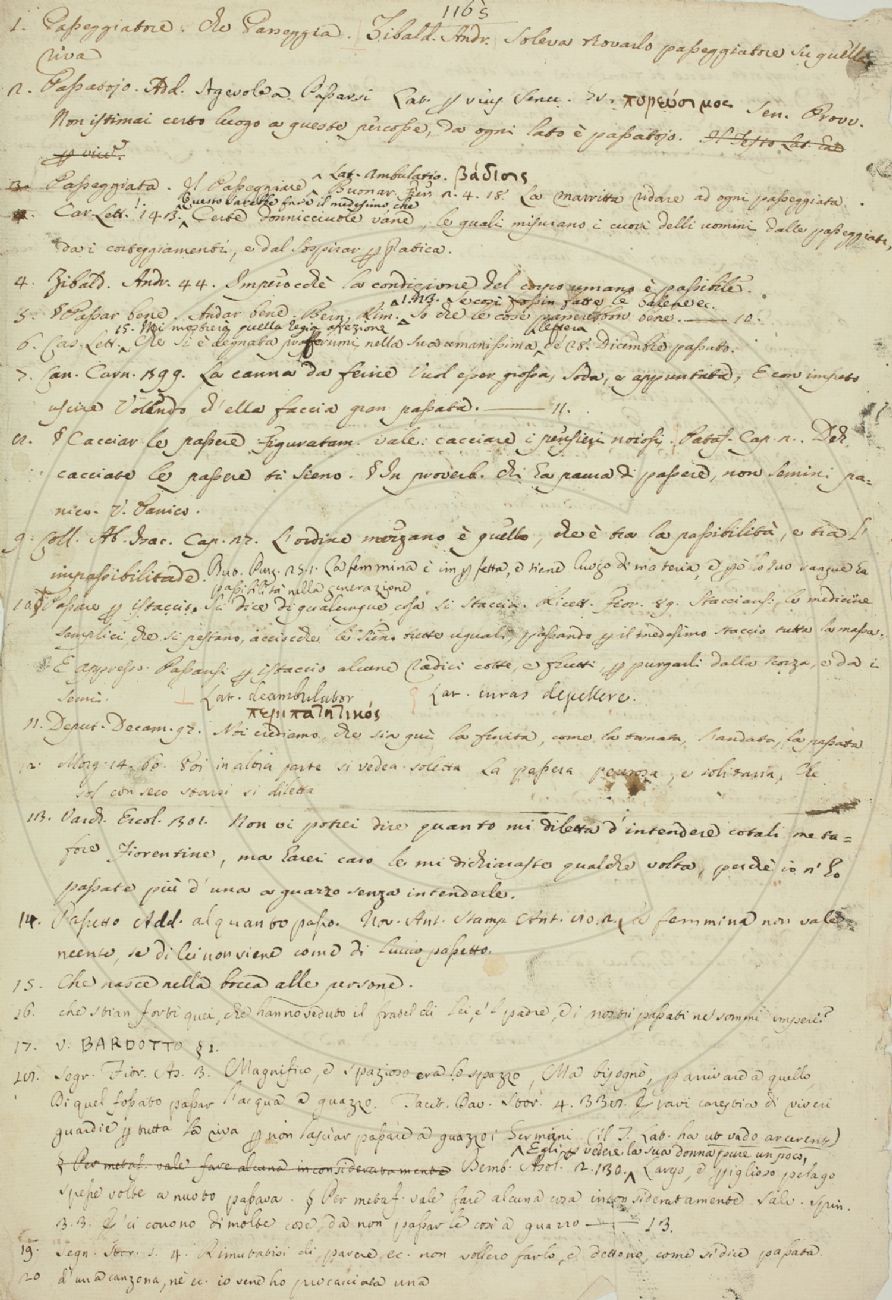 1165
1. Passeggiatore. che Passeggia. Zibald. Andr. Soleva trovarlo passeggiatore su quella
riva
2. Passatojo. Add. Agevole a Passarsi Lat. Gr. πορεύσιμος Sen. Prov.
Non istimai certo luogo a queste percosse, da ogni lato è passatojo. Il Testo Lat. ha
Lat. Ambulatio. βάδισις
3. Passeggiata. Il Passeggiare Buonar. Fier. 2. 4. 18. La marritta ridare ad ogni passeggiata.
Car. Lett. 1. 143. Certe donnicciuole vane, le quali misurano i cuori delli uomini dalle passeggiate,
da i corteggiamenti, e dal sospirar
4. Zibald. Andr. 44. Imperocchè la condizione del corpo umano è passibile.
5. § Passar bene. Andar bene. Bern. Rim. So che le cose bene. 10.
15. Mi mostrerà quella Regia affezione lettera
6. Car. Lett. Che si è degnata nella sua umanissima de' 28. Dicembre passato.
7. Can. Carn. 899. La canna da ferire Vuol esser grossa, soda, e appuntata; E con impeto
uscire Volendo ch'ella faccia gran passata. 11.
8. § Cacciar le passere Figuratam. vale: cacciare i pensieri noiosi. Pataff. Cap. 2. Deh
cacciate le passere ti sieno. § In proverb. chi ha paura di passere, non semini pa-
nico. V. Panico.
9. Coll. Ab. Isac. Cap. 27. L'ordine mezzano è quello, che è tra la passibilità, e tra l'
impassibilitade. But. Purg. 25. 1. La femmina è imperfetta, e tiene luogo di materia, e però lo suo sangue ha
passibilità nella generazione
10. § Passare per istaccio, Si dice di qualunque cosa si staccia. Ricett. Fior. 89. Stacciansi le medicine
semplici che si pestano, acciocchè le sieno tutte uguali, passando per il medesimo staccio tutta la massa.
E appresso. Passansi per istaccio alcune radici cotte, e frutti, per purgarli dalla scorza, e da i
semi. Lat. deambulator Lat. curas depellere.
περιπατητικός
11. Deput. Decam. 92. Noi crediamo, che sia qui la ferita, come la tornata, l'andata, la passata
12. Morg. 14. 60. Poi in altra parte si vedea soletta La passera penserosa, e solitaria, Che
sol con seco starsi si diletta
13. Varch. Ercol. 301. Non vi potrei dire quanto mi diletta d'intendere cotali meta-
fore Fiorentine, ma harei caro le mi dichiaraste qualche volta, perchè io n'ho
passate più d'una a guazzo senza intenderle.
14. Passetto Add. alquanto passo. Nov. Ant. Stamp. Ant. La femmina non vale
neente, se di lei non viene come di luccio passetto.
15. Che nasce nella bocca alle persone.
16. che stian forti quei, che hanno veduto il fratel di lei, e 'l padre, e i nostri passati ne' sommi imperi?
17. V. BARDOTTO § 1.
18. Segr. Fior. As. 3. Magnifico, e spazioso era lo spazzo, Ma bisognò, per arrivare a quello
Di quel fossato passar l'acqua a guazzo. Tacit. Dav. Stor. 4. 338. Gravi carestia di viveri
guardie per tutta la riva per non lasciar passare a guazzo i Germani (il T. Lat. ha ut vado arcerent)
Egli per vedere la sua donna pure un poco,
§ Per metaf. vale fare alcuna inconsideratamente Bemb. Asol. 2. 130. Largo, e periglioso pelago
spesse volte a nuoto passava. § Per metaf. vale fare alcuna cosa inconsideratamente Salv. Spin.
3. 3. E' ci corrono di molte cose, da non passarle così a guazzo 13.
19. Segn. Stor. 1. 4. Rimutatisi di parere ec. non vollero farlo, e dettono, come si dice passata
20 d'una canzona, nè ec. io sene ho procacciata una